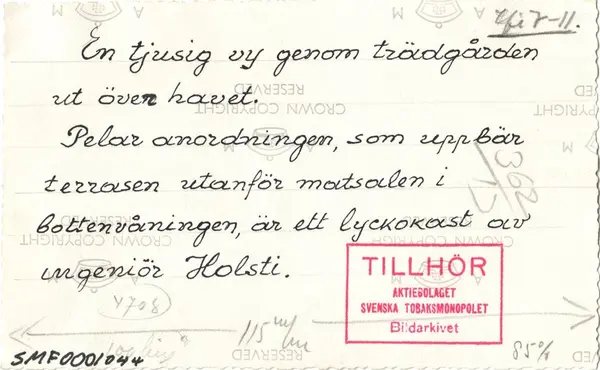 En tjusig vy genom trädgården
ut över havet.
Pelar anordningen, som uppbär
terrasen utanför matsalen i
bottenvåningen, är ett lyckokast av
ingeniör Holsti.
TILLHÖR
AKTIEBOLAGET
SVENSKA TOBAKSMONOPOLET
Bildarkivet
4708
115 m/m
85%
SMF0001044
RESERVED
CROWN COPYRIGHT